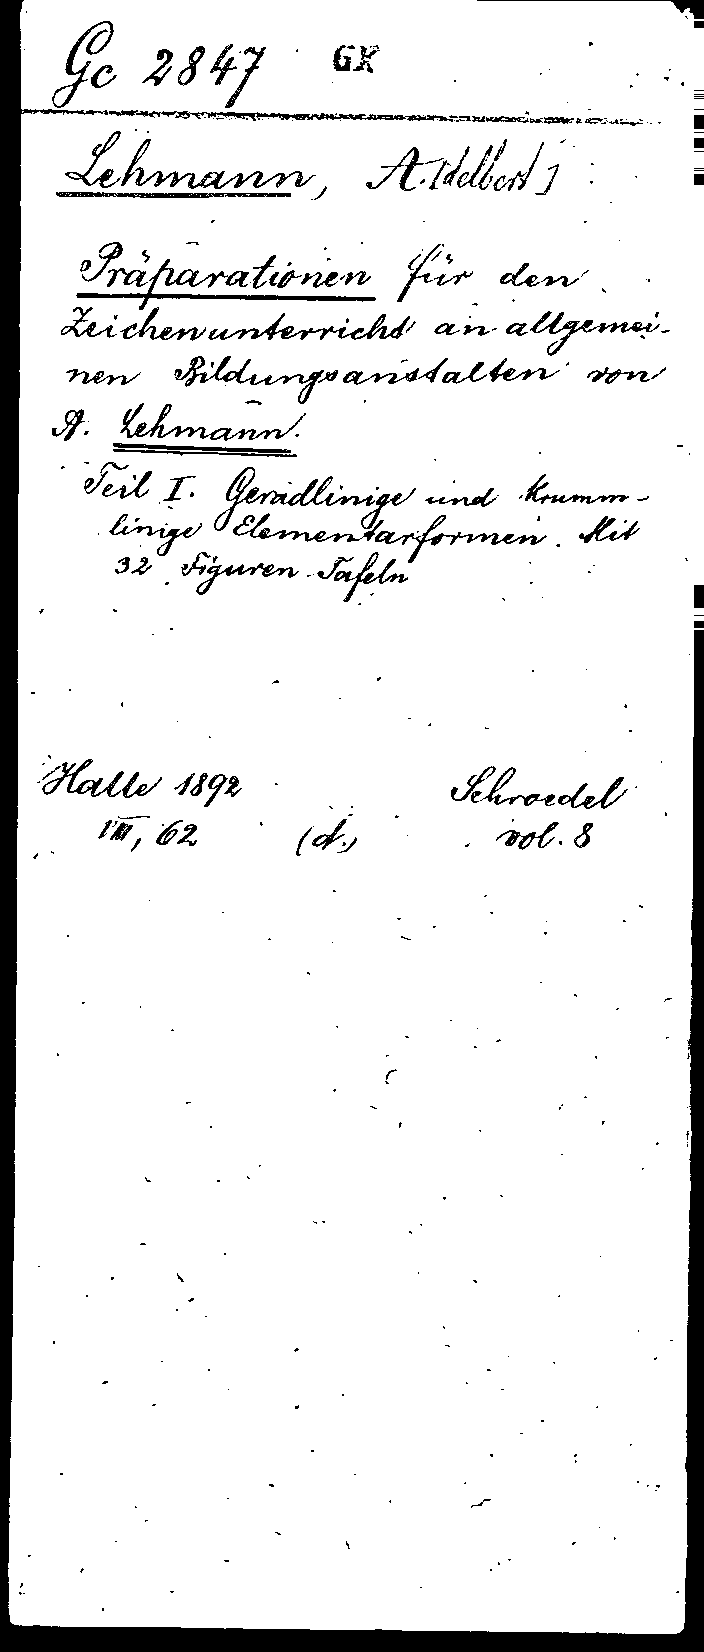 Gc 2847 GK
Lehmann, A.[delbert]
Präparationen für den
Zeichenunterricht an allgemei-
nen Bildungsanstalten von
A. Lehmann.
Teil I. Geradlinige und krumm-
linige Elementarformen. Mit
32 Figuren-Tafeln
Halle 1892 Schroedel
VIII, 62 (d.) vol. 8